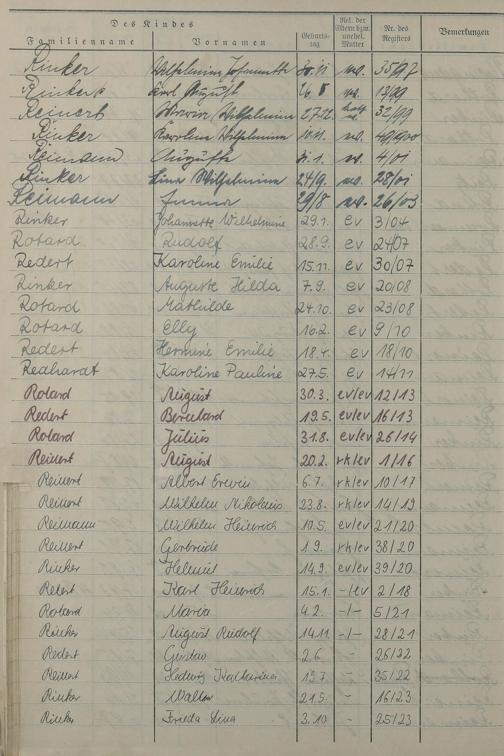 Des Kindes
Familienname Vornamen Geburtstag Rel. der Eltern bzw. unehel. Mutter Nr. des Registers Bemerkungen
Rinker Wilhelmine Johannette 30.11 ev. 35/97
Rinker Karl August ev. 13/99
Reinert Erwin Wilhelmine 27.12. kath ev. 32/99
Rinker Karoline Wilhelmine 10.11. ev. 49/900
Reimann Auguste 2.1. ev. 4/01
Rinker Lina Wilhelmine 24/9. ev. 28/01
Reimann Emma 29/8 ev. 26/03
Rinker Johannette Wilhelmine 29.1. ev 3/04
Rotard Rudolf 28.9. ev 24/07
Redert Karoline Emilie 15.11. ev 30/07
Rinker Auguste Hilda 7.9. ev 20/08
Rotard Mathilde 24.10. ev 23/08
Rotard Elly 16.2. ev 9/10
Redert Hermine Emilie 18.4. ev 18/10
Redhardt Karoline Pauline 27.5. ev 14/11
Rotard August 30.3. ev/ev 12/13
Redert Bernhard 19.5. ev/ev 16/13
Rotard Julius 31.8. ev/ev 26/14
Reinert August 20.2. rk/ev 1/16
Reinert Albert Erwin 6.7. rk/ev 10/17
Reinert Wilhelm Nikolaus 23.8. rk/ev 14/19
Reimann Wilhelm Heinrich 10.5. ev/ev 21/20
Reinert Gertrude 1.9. rk/ev 38/20
Rinker Helmut 14.9. ev/ev 39/20
Retert Karl Heinrich 15.1. -/ev 2/18
Rotard Maria 4.2. -/- 5/21
Rinker August Rudolf 14.11. -/- 28/21
Redert Gustav 2.6. - 26/22
Reinert Hedwig Katharina 19.7. - 35/22
Rinker Walter 21.5. - 16/23
Rinker Frieda Lina 3.10. - 25/23